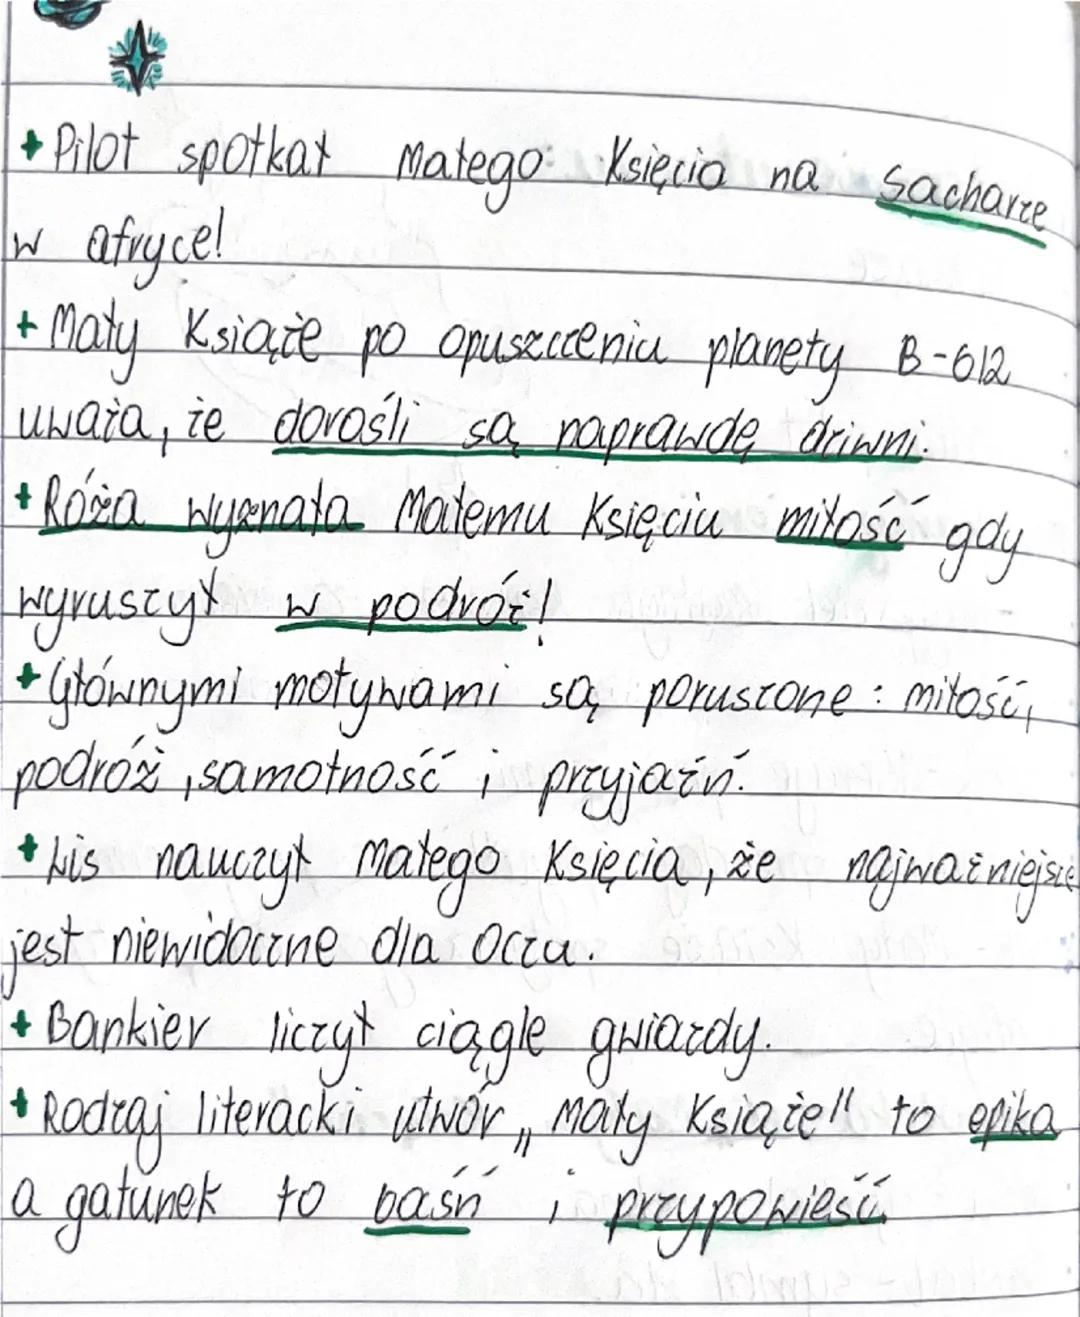 + Pilot spotkał Małego Księcia na Sacharze
w afryce!
+ Mały Książe po opuszczeniu planety B-612
uważa, że dorośli są naprawdę dziwni.
+ Róża wyznała Małemu Księciu miłość gdy
wyruszył w podróż!
+ Głównymi motywami są poruszone : miłość,
podróż, samotność i przyjaźń.
+ Lis nauczył Małego Księcia, że najważniejsze
jest niewidoczne dla ocza.
+ Bankier liczył ciągle gwiazdy.
+ Rodzaj literacki utwór „Mały Książe" to epika
a gatunek to baśń i przypowieść.